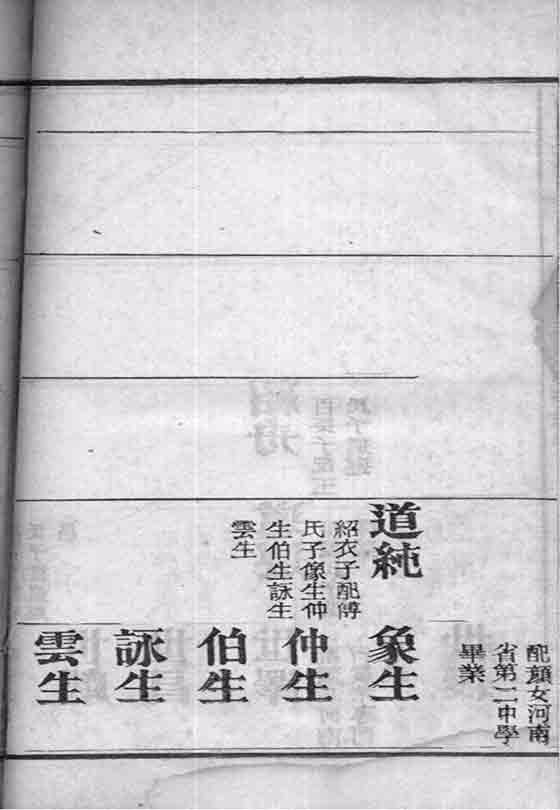 道純
紹衣子配傅
氏子像生仲
生伯生詠生
雲生
配顏女河南
省第二中學
畢業
象生
仲生
伯生
詠生
雲生